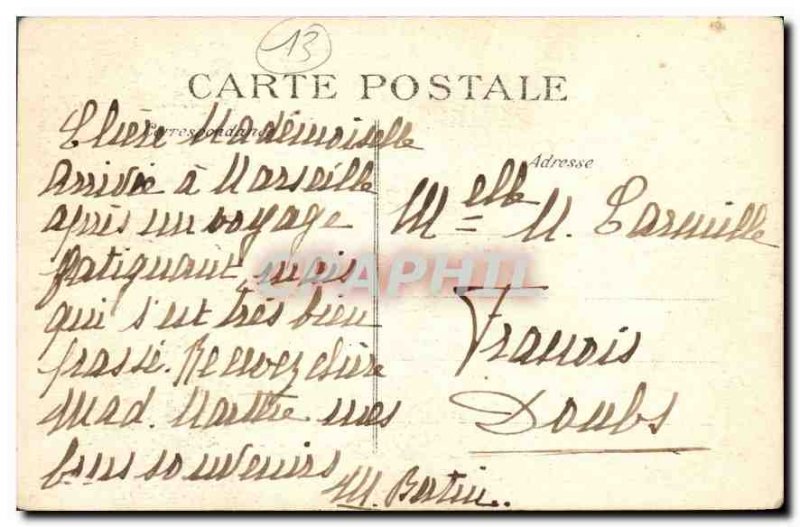 13
CARTE POSTALE
Correspondance
Chère Mademoiselle
Arrivée à Marseille
après un voyage
fatiguant, mais
qui s'est très bien
passé. Recevez chère
Mad. Marthe mes
bons souvenirs
M. Bertin.
Adresse
Melle M.
Franois
Doubs
CPAPHIL